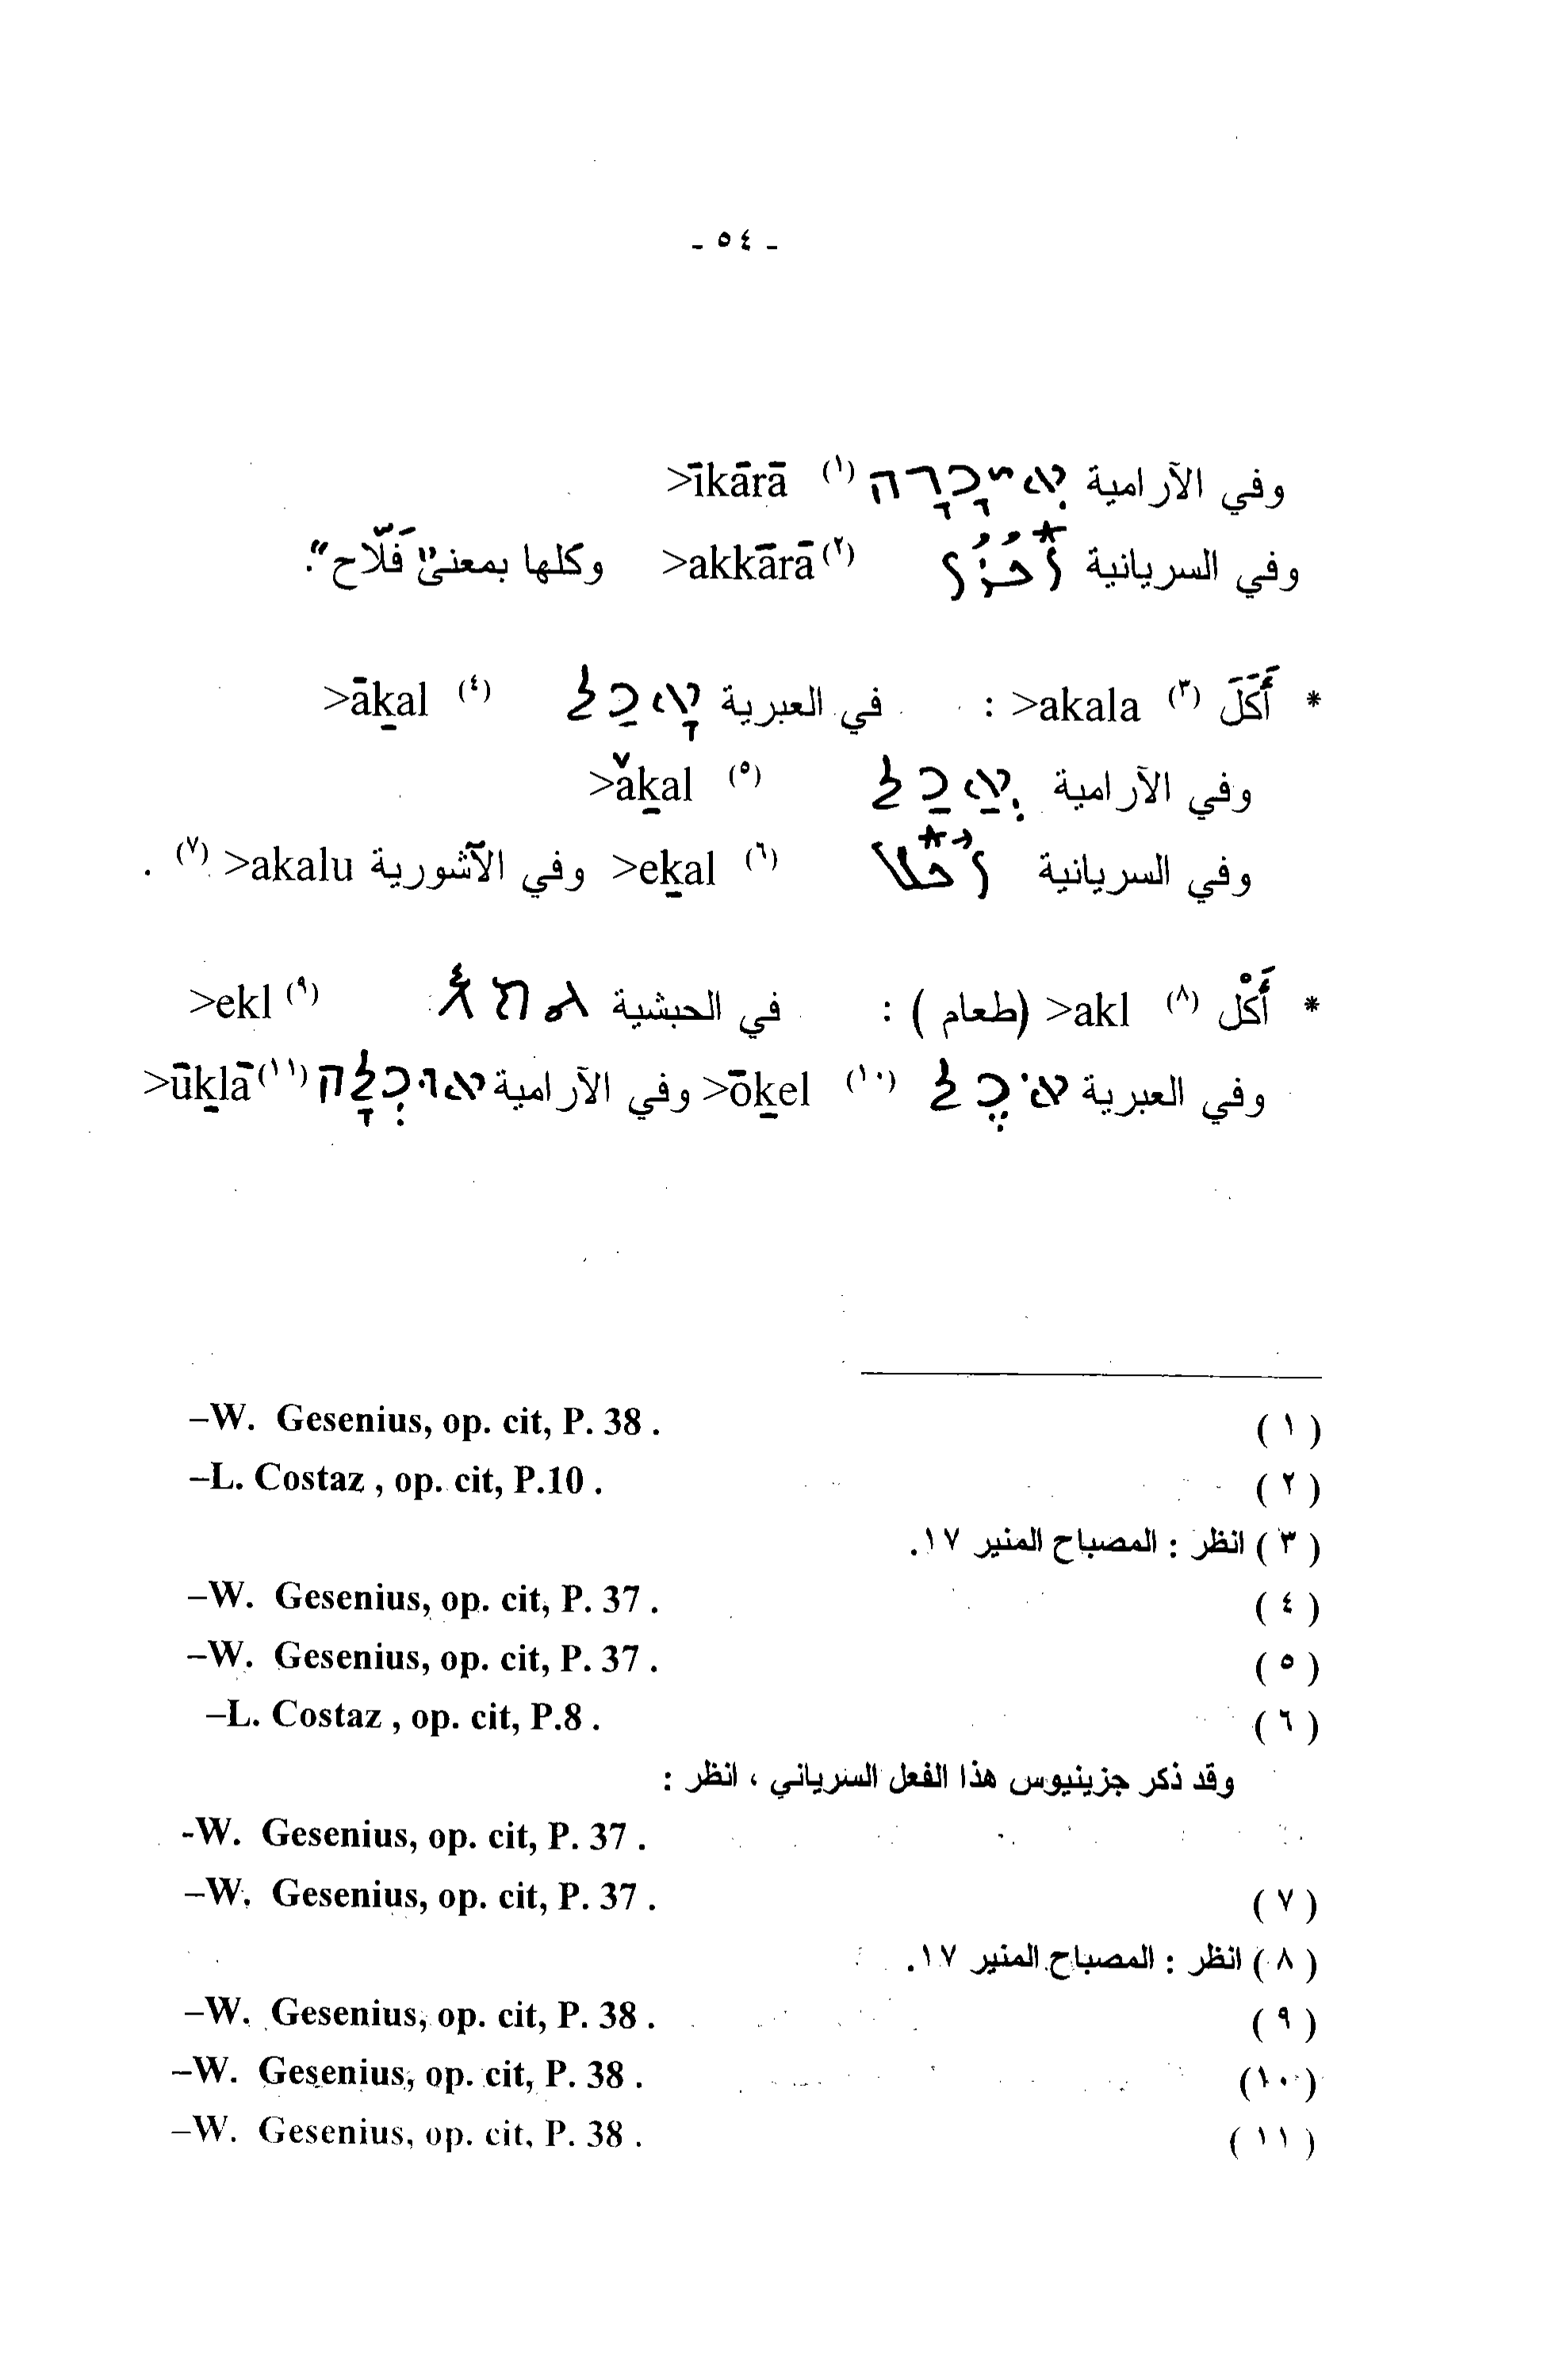 - ٥٤ -
وفي الآرامية אִיכָּרָה (١) >īkārā
وفي السريانية (٢) >akkārā وكلها بمعنى "فَلّاح".
* أَكَلَ (٣) >akala : في العبرية אָכַל (٤) >āḵal
وفي الآرامية אֲכַל (٥) >ǎḵal
وفي السريانية (٦) >eḵal وفي الآشورية >akalu (٧) .
* أَكْل (٨) >akl (طعام) : في الحبشية እክል (٩) >ekl
وفي العبرية אֹכֶל (١٠) >ōḵel وفي الآرامية אוּכְלָה (١١) >ūḵlā
(١) –W. Gesenius, op. cit, P. 38 .
(٢) –L. Costaz , op. cit, P.10 .
(٣) انظر : المصباح المنير ١٧.
(٤) –W. Gesenius, op. cit, P. 37 .
(٥) –W. Gesenius, op. cit, P. 37 .
(٦) –L. Costaz , op. cit, P.8 .
وقد ذكر جزينيوس هذا الفعل السرياني ، انظر :
-W. Gesenius, op. cit, P. 37 .
(٧) –W. Gesenius, op. cit, P. 37 .
(٨) انظر : المصباح المنير ١٧.
(٩) –W. Gesenius, op. cit, P. 38 .
(١٠) –W. Gesenius, op. cit, P. 38 .
(١١) –W. Gesenius, op. cit, P. 38 .